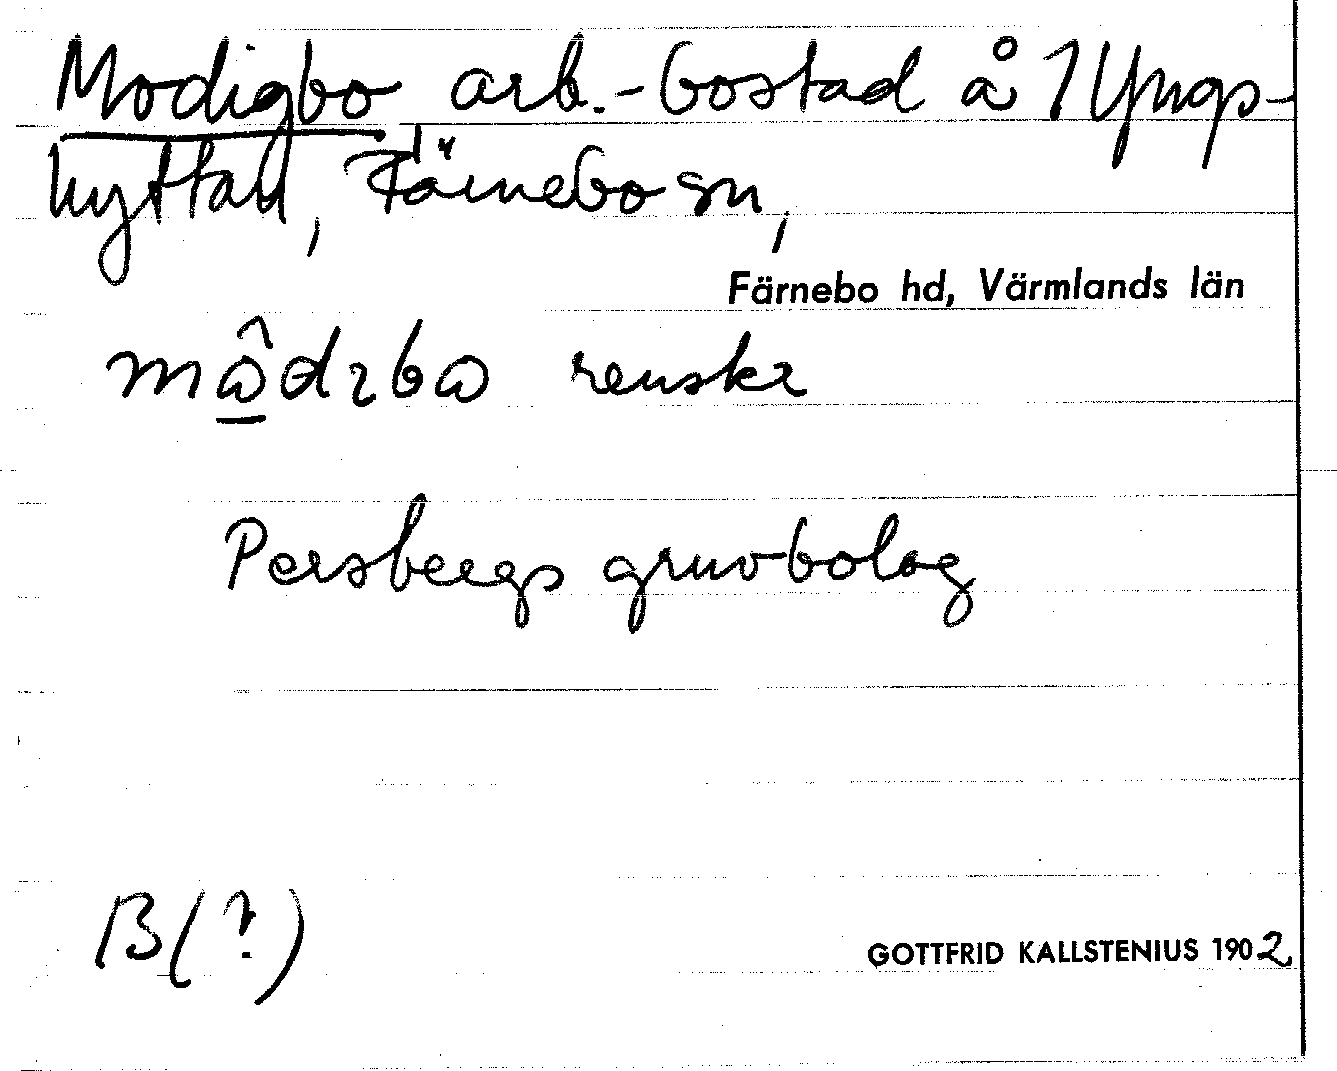 Modigbo arb.-bostad å 1 Yngs-
hyttan, Färnebo sn,
Färnebo hd, Värmlands län
Persbergs gruvbolag
B(?)
GOTTFRID KALLSTENIUS 1902